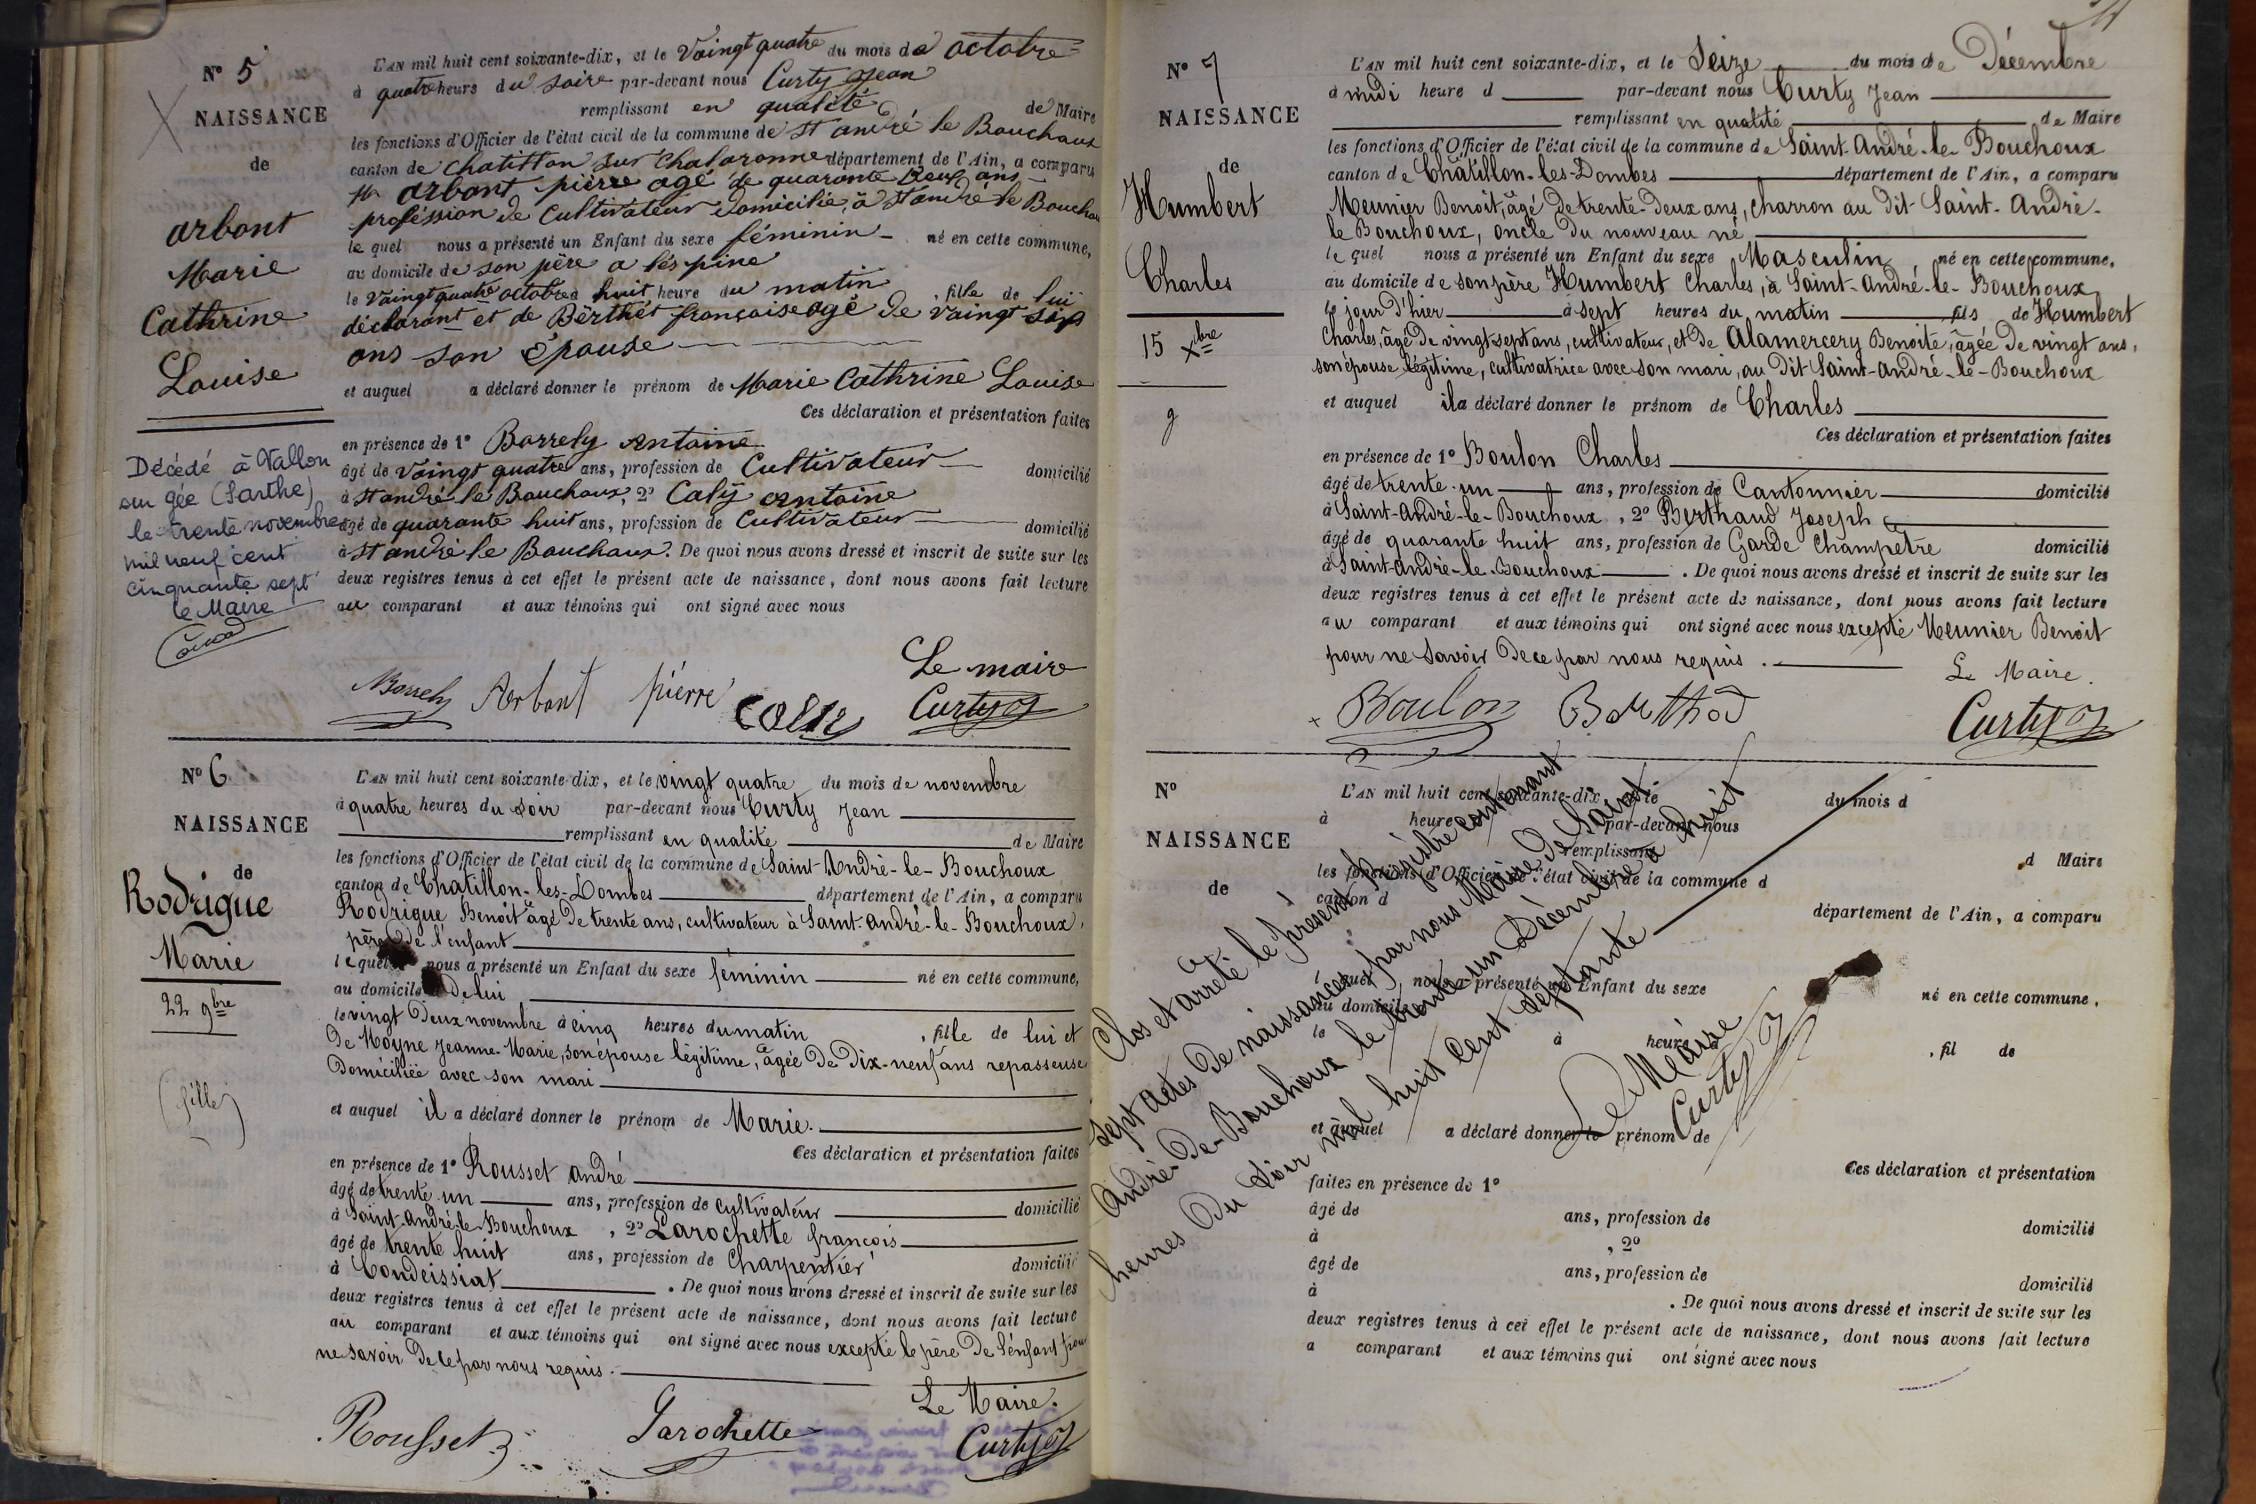 N° 5
NAISSANCE
de
arbant
Marie
Cathrine
Louise
Décédé à Vallon
sur gée (Sarthe)
le trente novembre
mil neuf cent
cinquante sept
le Maire
L'AN mil huit cent soixante-dix, et le Vaingt quatre du mois de octobre
à quatre heurs du soire par-devant nous Curty Jean
remplissant en qualité de Maire
les fonctions d'Officier de l'état civil de la commune de St andré le Bouchoux
canton de Chatillon sur Chalaronne département de l'Ain, a comparu
arbant pierre agé de quarante neuf ans
profession de Cultivateur domicilié à St andré le Bouchou
le quel nous a présenté un Enfant du sexe féminin né en cette commune,
au domicile de son père a léspine
le Vaingt quatre octobre à huit heure du matin , fille de lui
déclarant et de Bérthét françoise agé de vaingt six
ans son épouse
et auquel a déclaré donner le prénom de Marie Cathrine Louise
Ces déclaration et présentation faites
en présence de 1° Borrely antoine
âgé de vaingt quatre ans, profession de Cultivateur domicilié
à St andré le Bouchoux, 2° Caly antoine
âgé de quarante huit ans, profession de Cultivateur domicilié
à St andré le Bouchoux. De quoi nous avons dressé et inscrit de suite sur les
deux registres tenus à cet effet le présent acte de naissance, dont nous avons fait lecture
au comparant et aux témoins qui ont signé avec nous
Le maire
Borrely Arbant pierre Caly Curty
N° 6
NAISSANCE
de
Rodrigue
Marie
22 9bre
(fille)
L'AN mil huit cent soixante-dix, et le vingt quatre du mois de novembre
à quatre heures du soir par-devant nous Curty Jean
remplissant en qualité de Maire
les fonctions d'Officier de l'état civil de la commune de Saint-André-le-Bouchoux
canton de Chatillon-les-Dombes département de l'Ain, a comparu
Rodrigue Benoît âgé de trente ans, cultivateur à Saint-André-le-Bouchoux,
père de l'enfant
lequel nous a présenté un Enfant du sexe féminin né en cette commune,
au domicile de lui
le vingt deux novembre à cinq heures du matin , fille de lui et
de Moyne Jeanne-Marie, son épouse légitime, âgée de dix-neuf ans repasseuse
Domiciliée avec son mari
et auquel il a déclaré donner le prénom de Marie.
Ces déclaration et présentation faites
en présence de 1° Rousset andré
âgé de trente-un ans, profession de cultivateur domicilié
à Saint-André-le-Bouchoux, 2° Larochette françois
âgé de trente huit ans, profession de Charpentier domicilié
à Condeissiat. De quoi nous avons dressé et inscrit de suite sur les
deux registres tenus à cet effet le présent acte de naissance, dont nous avons fait lecture
au comparant et aux témoins qui ont signé avec nous excepté le père de l'enfant pour
ne savoir de ce par nous requis.
Le Maire.
Rousset Larochette Curty
N° 7
NAISSANCE
de
Humbert
Charles
15 Xbre
g
L'AN mil huit cent soixante-dix, et le Seize du mois de Décembre
à midi heure d par-devant nous Curty Jean
remplissant en qualité de Maire
les fonctions d'Officier de l'état civil de la commune de Saint-André-le-Bouchoux
canton de Châtillon-les-Dombes département de l'Ain, a comparu
Meunier Benoit, âgé de trente-deux ans, charron au dit Saint-André-
le Bouchoux, oncle du nouveau né
le quel nous a présenté un Enfant du sexe Masculin, né en cette commune,
au domicile de son père Humbert Charles, à Saint-André-le-Bouchoux
le jour d'hier à sept heures du matin fils de Humbert
Charles, âgé de vingt-sept ans, cultivateur, et de Alamercery Benoite, âgée de vingt ans,
son épouse légitime, cultivatrice avec son mari, au dit Saint-André-le-Bouchoux
et auquel il a déclaré donner le prénom de Charles
Ces déclaration et présentation faites
en présence de 1° Boulon Charles
âgé de trente-un ans, profession de Cantonnier domicilié
à Saint-André-le-Bouchoux, 2° Berthaud Joseph
âgé de quarante huit ans, profession de Garde Champetre domicilié
à Saint-André-le-Bouchoux. De quoi nous avons dressé et inscrit de suite sur les
deux registres tenus à cet effet le présent acte de naissance, dont nous avons fait lecture
au comparant et aux témoins qui ont signé avec nous excepté Meunier Benoit
pour ne savoir de ce par nous requis.
Le Maire.
Boulon Berthod Curty
N°
NAISSANCE
de
L'AN mil huit cent soixante-dix, et le du mois d
à heure par-devant nous
remplissant d Maire
les fonctions d'Officier de l'état civil de la commune d
canton d département de l'Ain, a comparu
lequel nous a présenté un Enfant du sexe né en cette commune,
au domicile
le à heure d , fil de
et auquel a déclaré donner le prénom de
Ces déclaration et présentation
faites en présence de 1°
âgé de ans, profession de domicilié
à , 2°
âgé de ans, profession de domicilié
à . De quoi nous avons dressé et inscrit de suite sur les
deux registres tenus à cet effet le présent acte de naissance, dont nous avons fait lecture
a comparant et aux témoins qui ont signé avec nous
Clos et arrêté le présent registre contenant
sept actes de naissances, par nous Maire de Saint
André-de-Bouchoux le trente-un Décembre à huit
heures du soir mil huit cent septante
Le Maire
Curty